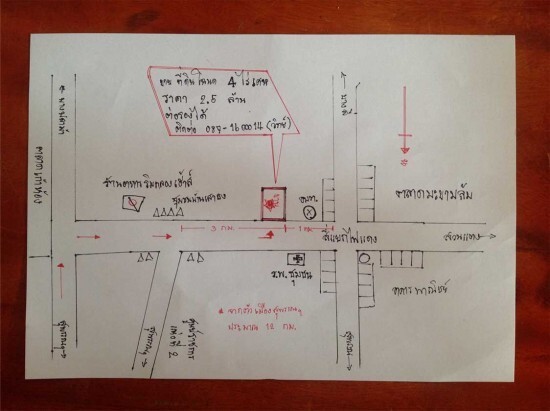 ขาย ที่ดินโฉนด 4 ไร่เศษ
ราคา 2.5 ล้าน
ต่อรองได้
ติดต่อ
ร้านอาหาร ริมคลอง เฮ้าส์
อบต.
ตลาดมะขามล้ม
3 กม
1 กม
สี่แยกไฟแดง
สวนแตง
ร.พ. ชุมชน
อาคารพาณิชย์
ศูนย์ราชการ
แห่งที่ 2
จากตัวเมืองสุพรรณฯ
ประมาณ 12 กม.